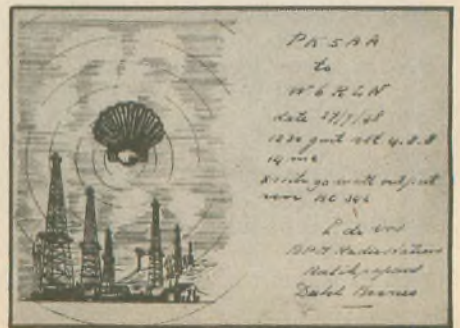 PK5AA
to
W6RLN
date 27/7/48
1230 gmt rst 4.8.8
14 mc
watt output
L de Vos
BPM Radio Station
Balikpapan
Dutch Borneo